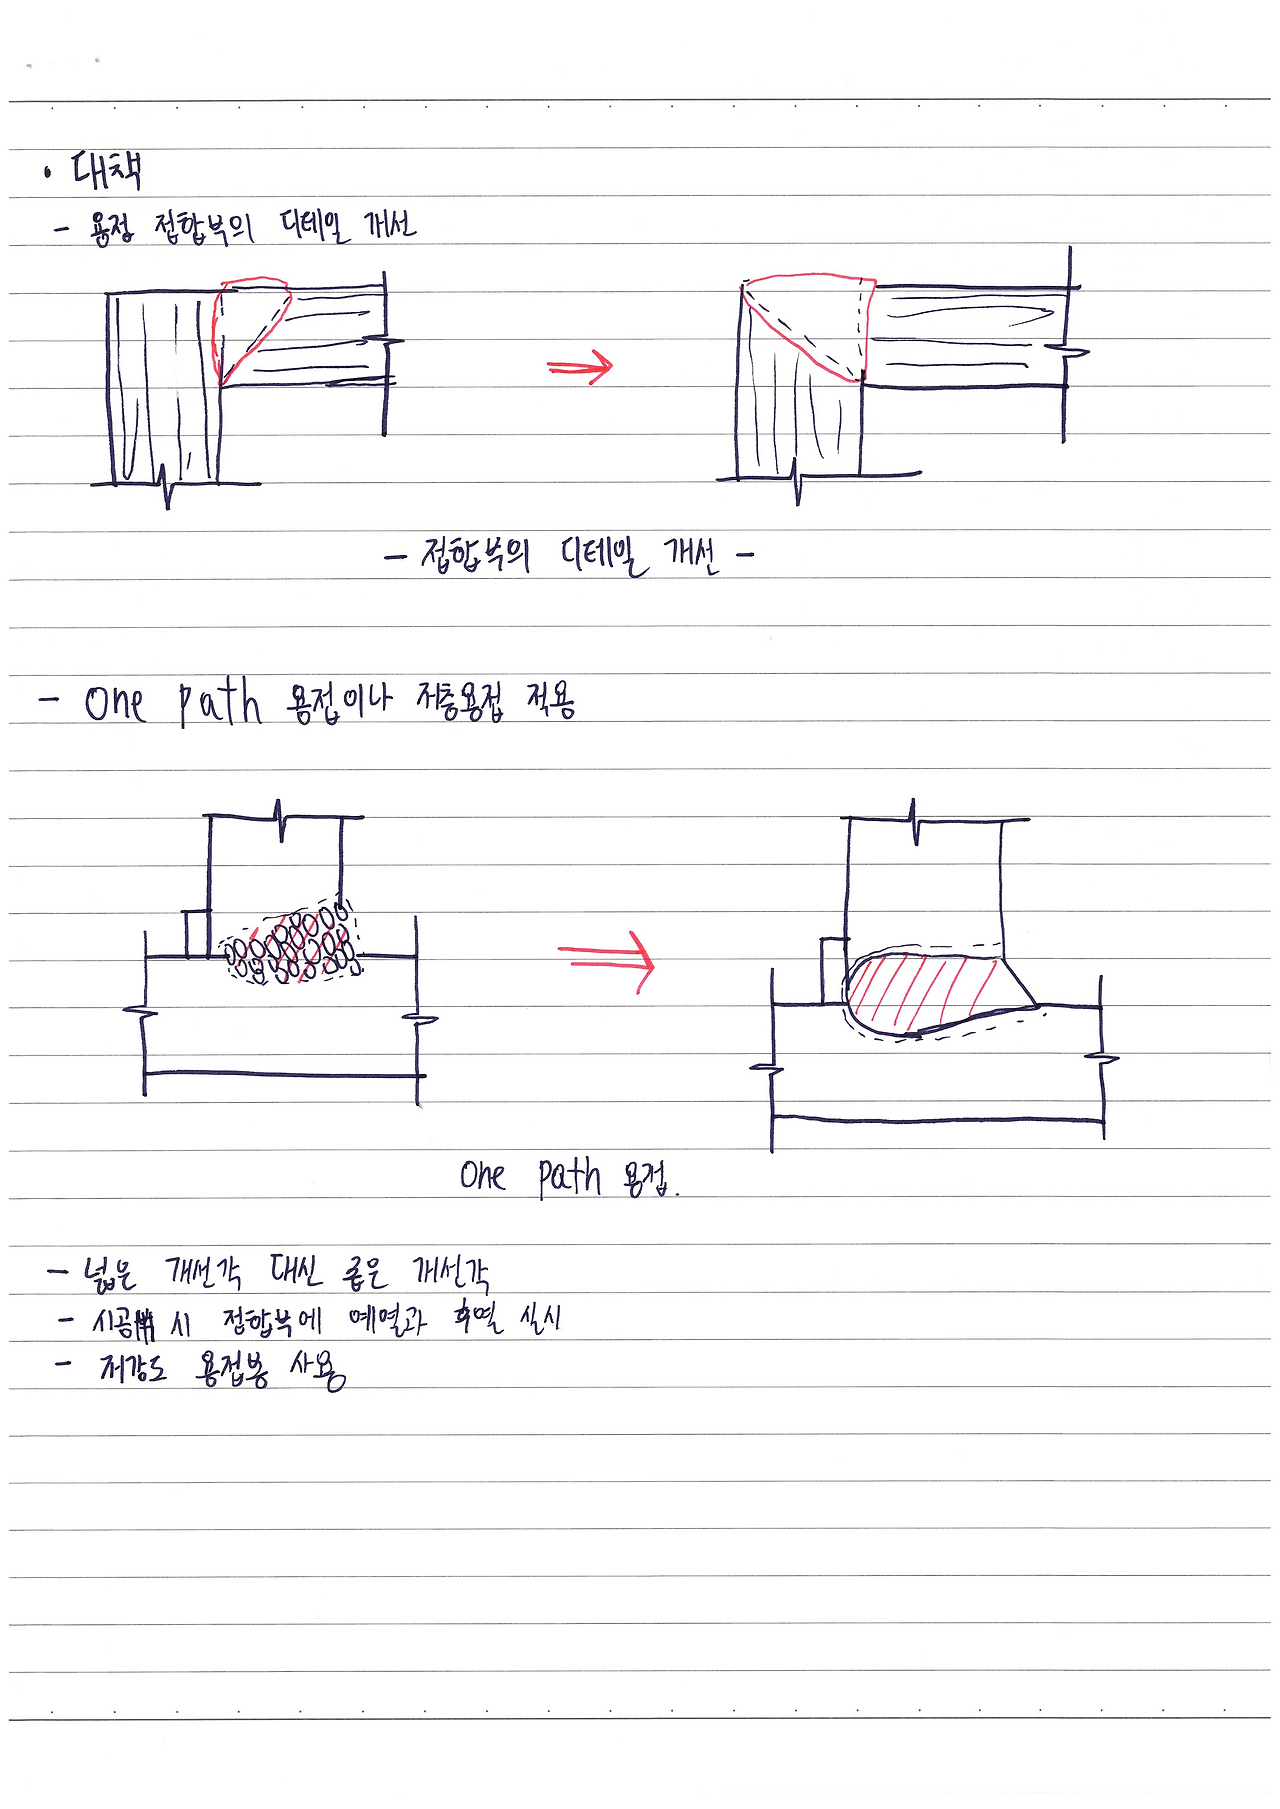 • 대책
- 용정 접합부의 디테일 개선
- 접합부의 디테일 개선 -
- One path 용접이나 저층용접 적용
One path 용접.
- 넓은 개선각 대신 좁은 개선각
- 시공 시 접합부에 예열과 후열 실시
- 저강도 용접봉 사용